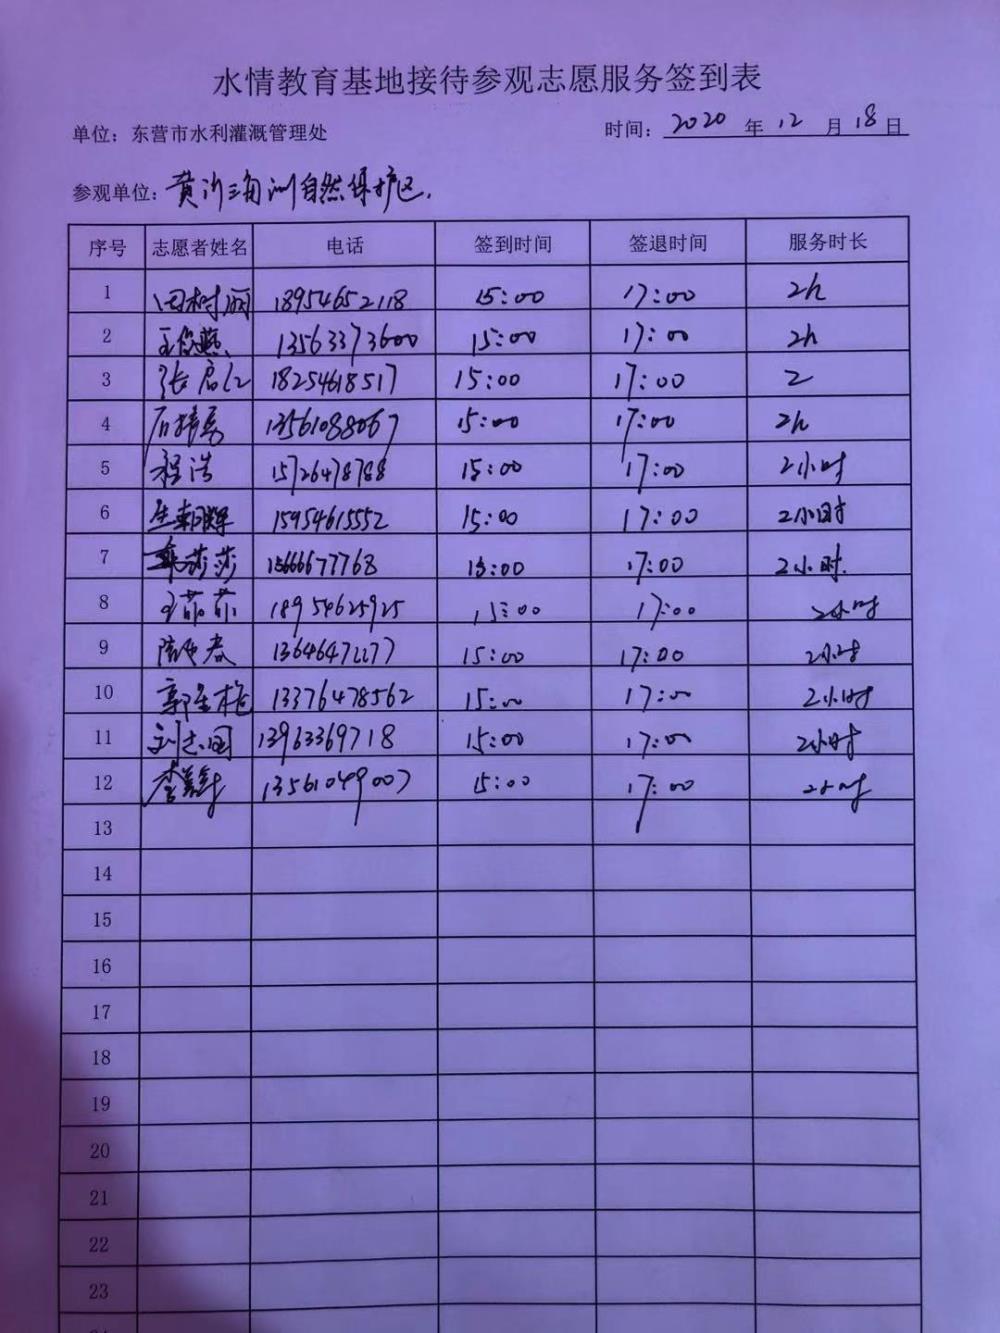 水情教育基地接待参观志愿服务签到表
单位：东营市水利灌溉管理处 时间：2020 年 12 月 18 日
参观单位：黄河三角洲自然保护区.
序号 志愿者姓名 电话 签到时间 签退时间 服务时长
1 田树丽 18954652118 15:00 17:00 2h
2 13563373600 15:00 17:00 2h
3 18254618517 15:00 17:00 2
4 13561088067 15:00 17:00 2h
5 程浩 15726478788 15:00 17:00 2小时
6 生朝辉 15954615552 15:00 17:00 2小时
7 莎莎 15666677768 15:00 17:00 2小时.
8 王茹茹 18954625925 15:00 17:00 2小时
9 13646472277 15:00 17:00 2小时
10 13376478562 15:00 17:00 2小时
11 刘志国 13963369718 15:00 17:00 2小时
12 13561049007 15:00 17:00 2小时
13
14
15
16
17
18
19
20
21
22
23